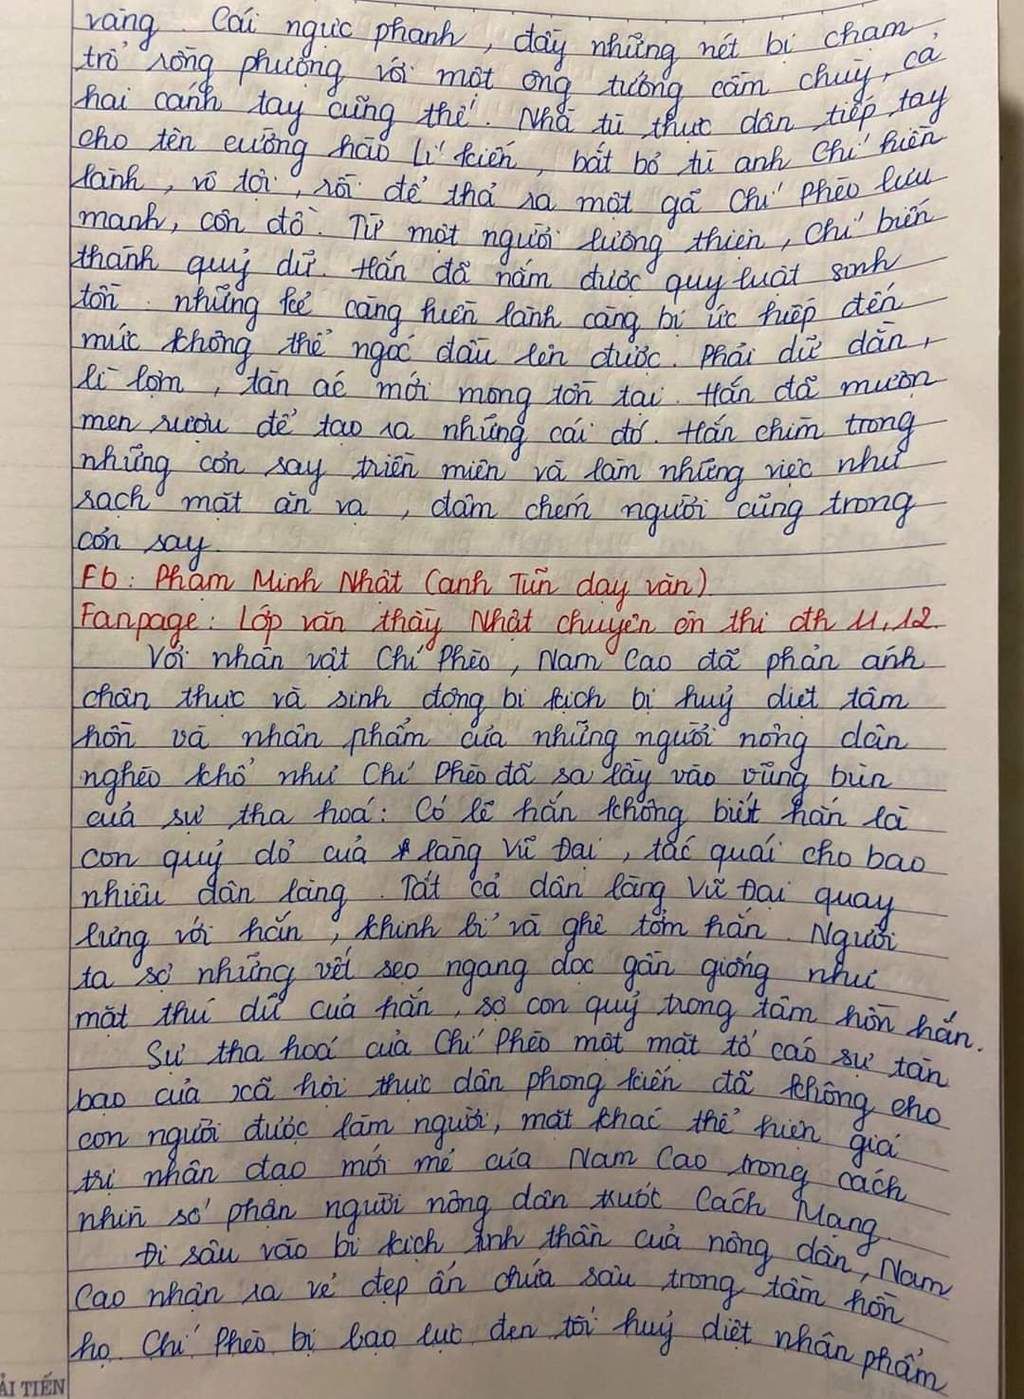 vàng. Cái ngực phanh, đầy những nét bị chạm
trổ rồng phượng với một ông tướng cầm chuỳ, cả
hai cánh tay cũng thế. Nhà tù thực dân tiếp tay
cho tên cường hào lí kiến, bắt bỏ tù anh Chí hiền
lành, vô tội, rồi để thả ra một gã Chí Phèo lưu
manh, côn đồ. Từ một người lương thiện, Chí biến
thành quỷ dữ. Hắn đã nắm được quy luật sinh
tồn những kẻ càng hiền lành càng bị ức hiếp đến
mức không thể ngóc đầu lên được. Phải dữ dằn,
lì lợm, tàn ác mới mong tồn tại. Hắn đã mượn
men rượu để tạo ra những cái đó. Hắn chìm trong
những cơn say triền miên và làm những việc như
rạch mặt ăn vạ, đâm chém người cũng trong
cơn say
Fb: Phạm Minh Nhật (anh Tũn dạy văn)
Fanpage: Lớp văn thầy Nhật chuyên ôn thi đh 11,12.
Với nhân vật Chí Phèo, Nam Cao đã phản ánh
chân thực và sinh động bi kịch bị huỷ diệt tâm
hồn và nhân phẩm của những người nông dân
nghèo khổ như Chí Phèo đã sa lầy vào vũng bùn
của sự tha hoá: Có lẽ hắn không biết hắn là
con quỷ dỏ của làng Vũ Đại, tác quái cho bao
nhiêu dân làng. Tất cả dân làng Vũ Đại quay
lưng với hắn, khinh bỉ và ghê tởm hắn. Người
ta sợ những vết sẹo ngang dọc gần giống như
mặt thú dữ của hắn, sợ con quỷ trong tâm hồn hắn.
Sự tha hoá của Chí Phèo một mặt tố cáo sự tàn
bạo của xã hội thực dân phong kiến đã không cho
con người được làm người, mặt khác thể hiện giá
trị nhân đạo mới mẻ của Nam Cao trong cách
nhìn số phận người nông dân trước Cách Mạng.
Đi sâu vào bi kịch tinh thần của nông dân, Nam
Cao nhận ra vẻ đẹp ẩn chứa sâu trong tâm hồn
họ. Chí Phèo bị bạo lực đen tối huỷ diệt nhân phẩm
ẢI TIẾN